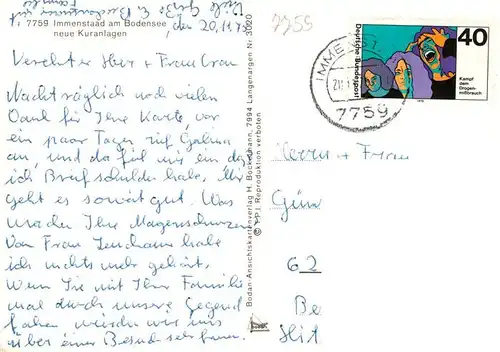 7759 Immenstaad am Bodensee
neue Kuranlagen
den 20.11.75
Verehrter Herr + Frau
Nachträglich noch vielen
Dank für Ihre Karte, vor
ein paar Tagen rief Galina
an, und da fiel mir ein, daß
ich Briefschulden habe. Mir
geht es soweit gut. Was
machen Ihre Magenschmerzen
Von Frau habe
ich nichts mehr gehört.
Wenn Sie mit Ihrer Familie
mal durch unsere Gegend
fahren würden wir uns
über einen Besuch sehr freuen.
Bodan-Ansichtskartenverlag H. Bockelmann, 7994 Langenargen Nr. 3020
© P.P.I. Reproduktion verboten
7759
IMMENST
7759
Deutsche Bundespost
40
Kampf
dem
Drogen-
mißbrauch
1975
Herrn + Frau
Gün
62